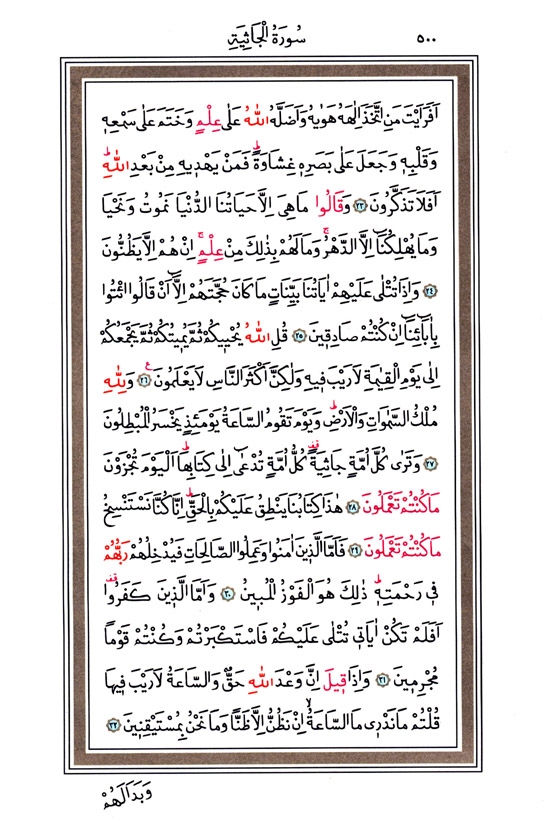 ٥٠٠ سُورَةُ الْجَاثِيَةِ
اَفَرَاَيْتَ مَنِ اتَّخَذَ اِلٰهَهُ هَوٰيهُ وَاَضَلَّهُ اللّٰهُ عَلٰى عِلْمٍ وَخَتَمَ عَلٰى سَمْعِهٖ
وَقَلْبِهٖ وَجَعَلَ عَلٰى بَصَرِهٖ غِشَاوَةًۜ فَمَنْ يَهْدٖيهِ مِنْ بَعْدِ اللّٰهِۜ
اَفَلَا تَذَكَّرُونَ ﴿٢٣﴾ وَقَالُوا مَا هِيَ اِلَّا حَيَاتُنَا الدُّنْيَا نَمُوتُ وَنَحْيَا
وَمَا يُهْلِكُنَٓا اِلَّا الدَّهْرُۚ وَمَا لَهُمْ بِذٰلِكَ مِنْ عِلْمٍۚ اِنْ هُمْ اِلَّا يَظُنُّونَ
﴿٢٤﴾ وَاِذَا تُتْلٰى عَلَيْهِمْ اٰيَاتُنَا بَيِّنَاتٍ مَا كَانَ حُجَّتَهُمْ اِلَّٓا اَنْ قَالُوا ائْتُوا
بِاٰبَٓائِنَٓا اِنْ كُنْتُمْ صَادِقٖينَ ﴿٢٥﴾ قُلِ اللّٰهُ يُحْيٖيكُمْ ثُمَّ يُمٖيتُكُمْ ثُمَّ يَجْمَعُكُمْ
اِلٰى يَوْمِ الْقِيٰمَةِ لَا رَيْبَ فٖيهِ وَلٰكِنَّ اَكْثَرَ النَّاسِ لَا يَعْلَمُونَ ﴿٢٦﴾ وَلِلّٰهِ
مُلْكُ السَّمٰوَاتِ وَالْاَرْضِۜ وَيَوْمَ تَقُومُ السَّاعَةُ يَوْمَئِذٍ يَخْسَرُ الْمُبْطِلُونَ
﴿٢٧﴾ وَتَرٰى كُلَّ اُمَّةٍ جَاثِيَةً۠ كُلُّ اُمَّةٍ تُدْعٰٓى اِلٰى كِتَابِهَاۜ اَلْيَوْمَ تُجْزَوْنَ
مَا كُنْتُمْ تَعْمَلُونَ ﴿٢٨﴾ هٰذَا كِتَابُنَا يَنْطِقُ عَلَيْكُمْ بِالْحَقِّۜ اِنَّا كُنَّا نَسْتَنْسِخُ
مَا كُنْتُمْ تَعْمَلُونَ ﴿٢٩﴾ فَاَمَّا الَّذٖينَ اٰمَنُوا وَعَمِلُوا الصَّالِحَاتِ فَيُدْخِلُهُمْ رَبُّهُمْ
فٖي رَحْمَتِهٖۜ ذٰلِكَ هُوَ الْفَوْزُ الْمُبٖينُ ﴿٣٠﴾ وَاَمَّا الَّذٖينَ كَفَرُوا۠
اَفَلَمْ تَكُنْ اٰيَاتٖي تُتْلٰى عَلَيْكُمْ فَاسْتَكْبَرْتُمْ وَكُنْتُمْ قَوْمًا
مُجْرِمٖينَ ﴿٣١﴾ وَاِذَا قٖيلَ اِنَّ وَعْدَ اللّٰهِ حَقٌّ وَالسَّاعَةُ لَا رَيْبَ فٖيهَا
قُلْتُمْ مَا نَدْرٖي مَا السَّاعَةُۙ اِنْ نَظُنُّ اِلَّا ظَنًّا وَمَا نَحْنُ بِمُسْتَيْقِنٖينَ ﴿٣٢﴾
وَبَدَا لَهُمْ